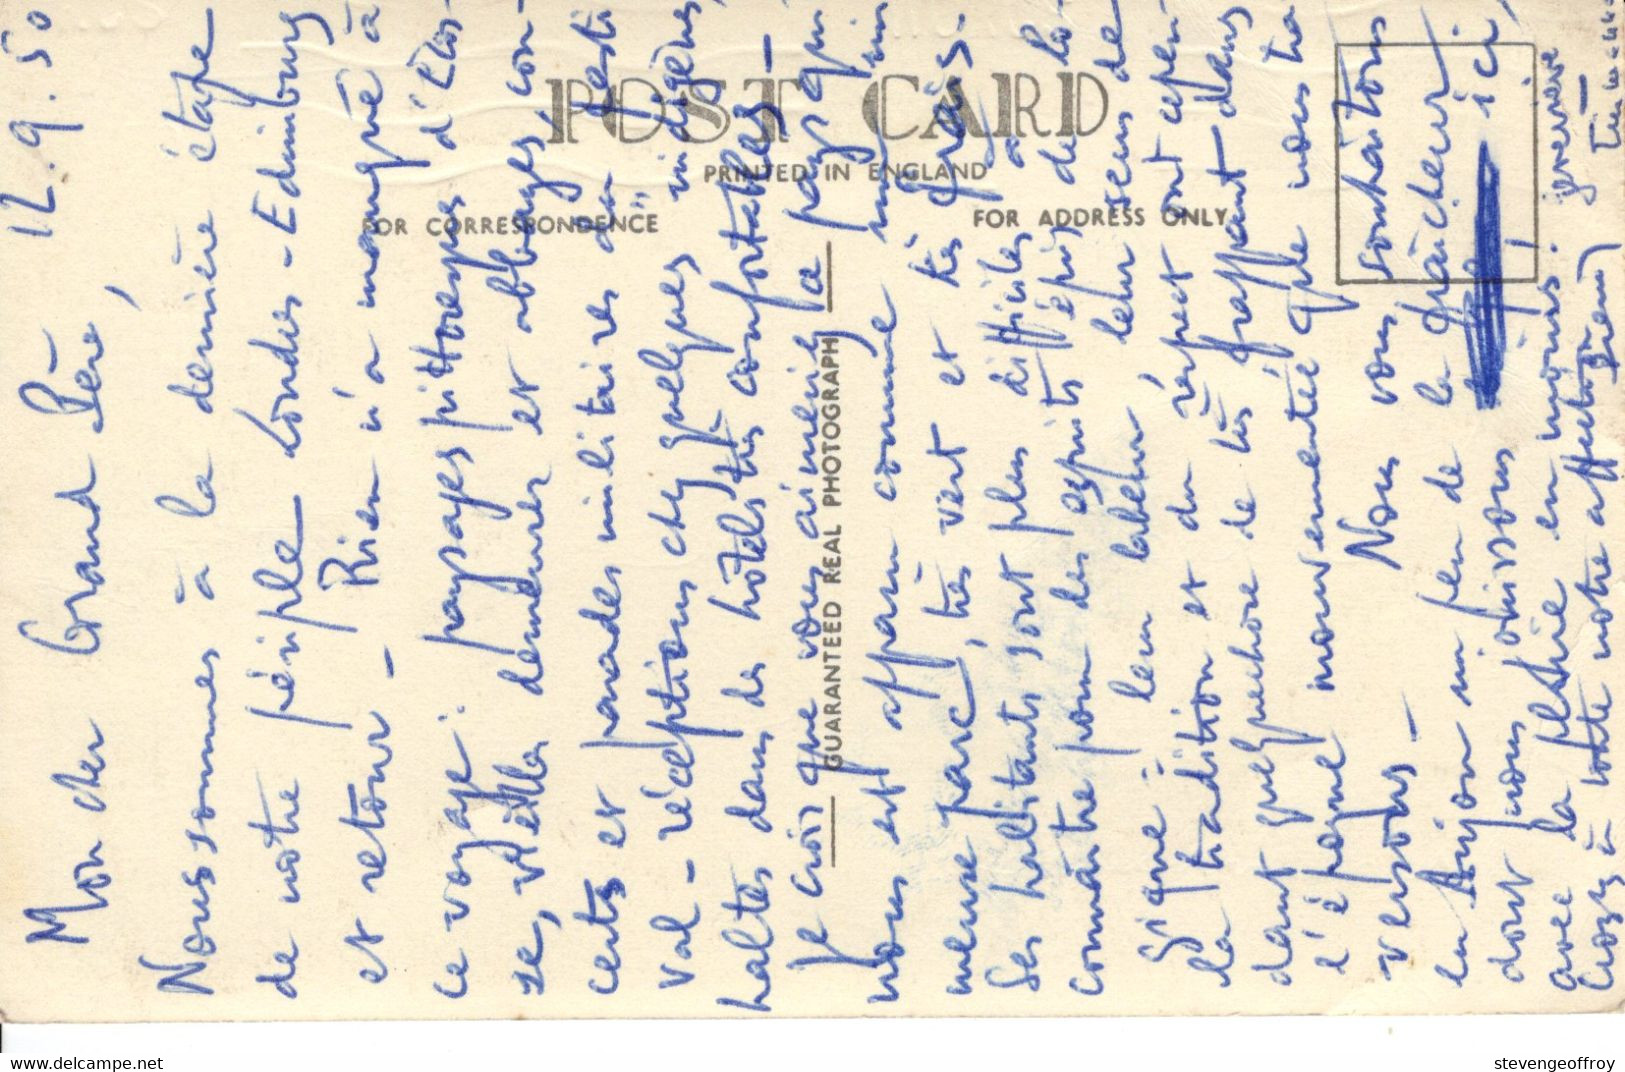 12.9.50
Mon cher Grand Père,
Nous sommes à la dernière étape
de notre périple Londres - Edimbourg
et retour - Rien n'a manqué à
ce voyage : paysages pittoresques d'Ecos-
se, vieilles demeures et abbayes, con-
certs et parades militaires du "festi
val" - réceptions chez quelques indigènes,
haltes dans des hôtels très confortables -
Je crois que vous aimeriez ce pays qui
nous est apparu comme un im-
mense parc, très vert et très frais.
Ses habitants sont plus difficiles à
connaître pour des esprits épris de lo-
gique : leur labeur, leur sens de
la tradition et du respect ont cepen-
dant quelque chose de très frappant dans
l'époque mouvementée que nous tra
versons - Nous vous souhaitons
en Anjou un peu de la fraîcheur
dont nous jouissons ici,
avec la pluie en moins.
Croyez à toute notre affection
POST CARD
PRINTED IN ENGLAND
FOR CORRESPONDENCE
FOR ADDRESS ONLY
GUARANTEED REAL PHOTOGRAPH
https://www.delcampe.net
stevengeoffroy